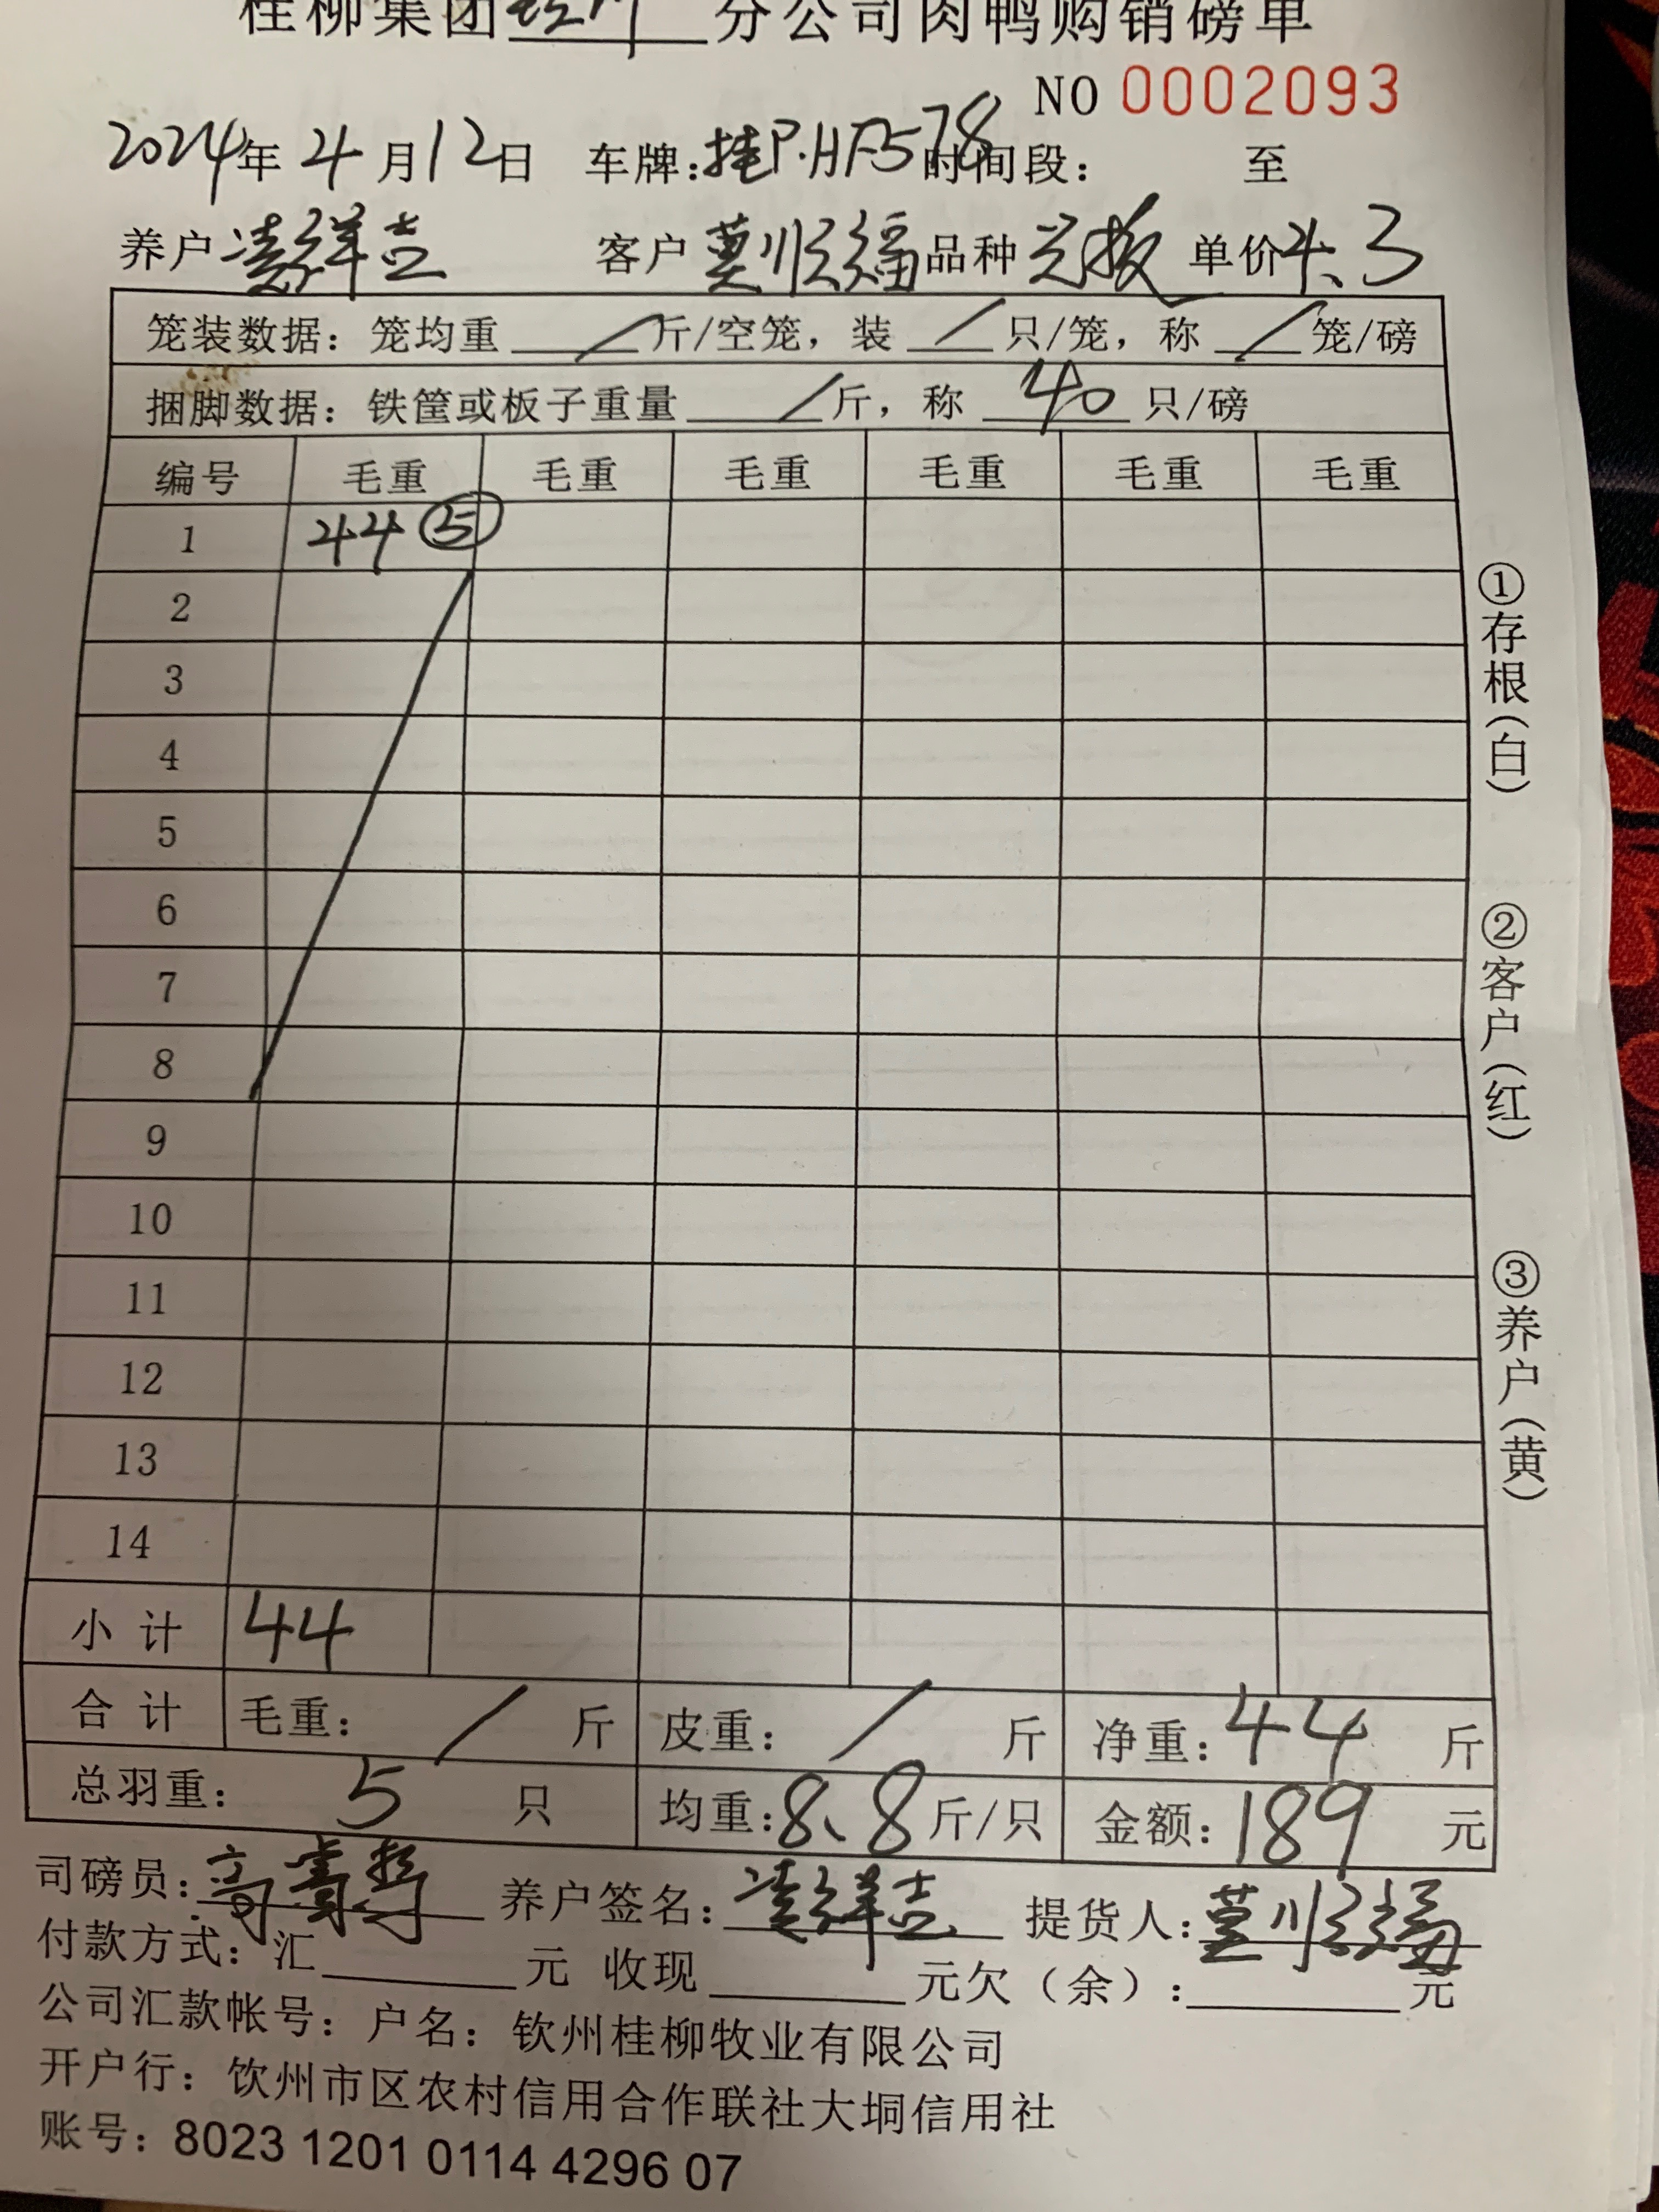 桂柳集团 分公司肉鸭购销磅单
NO 0002093
2024年 4月12日 车牌:桂P·HF578 时间段: 至
养户 凌祥吉 客户 莫顺福 品种 单价 4.3
笼装数据: 笼均重 / 斤/空笼, 装 / 只/笼, 称 / 笼/磅
捆脚数据: 铁筐或板子重量 / 斤, 称 40 只/磅
编号 毛重 毛重 毛重 毛重 毛重 毛重
1 44 ⑤
2
3
4
5
6
7
8
9
10
11
12
13
14
小计 44
合计 毛重: / 斤 皮重: / 斤 净重: 44 斤
总羽重: 5 只 均重: 8.8 斤/只 金额: 189 元
司磅员: 养户签名: 凌祥吉 提货人: 莫顺福
付款方式: 汇 元 收现 元欠(余): 元
公司汇款帐号: 户名: 钦州桂柳牧业有限公司
开户行: 钦州市区农村信用合作联社大垌信用社
账号: 8023 1201 0114 4296 07
①存根(白)
②客户(红)
③养户(黄)